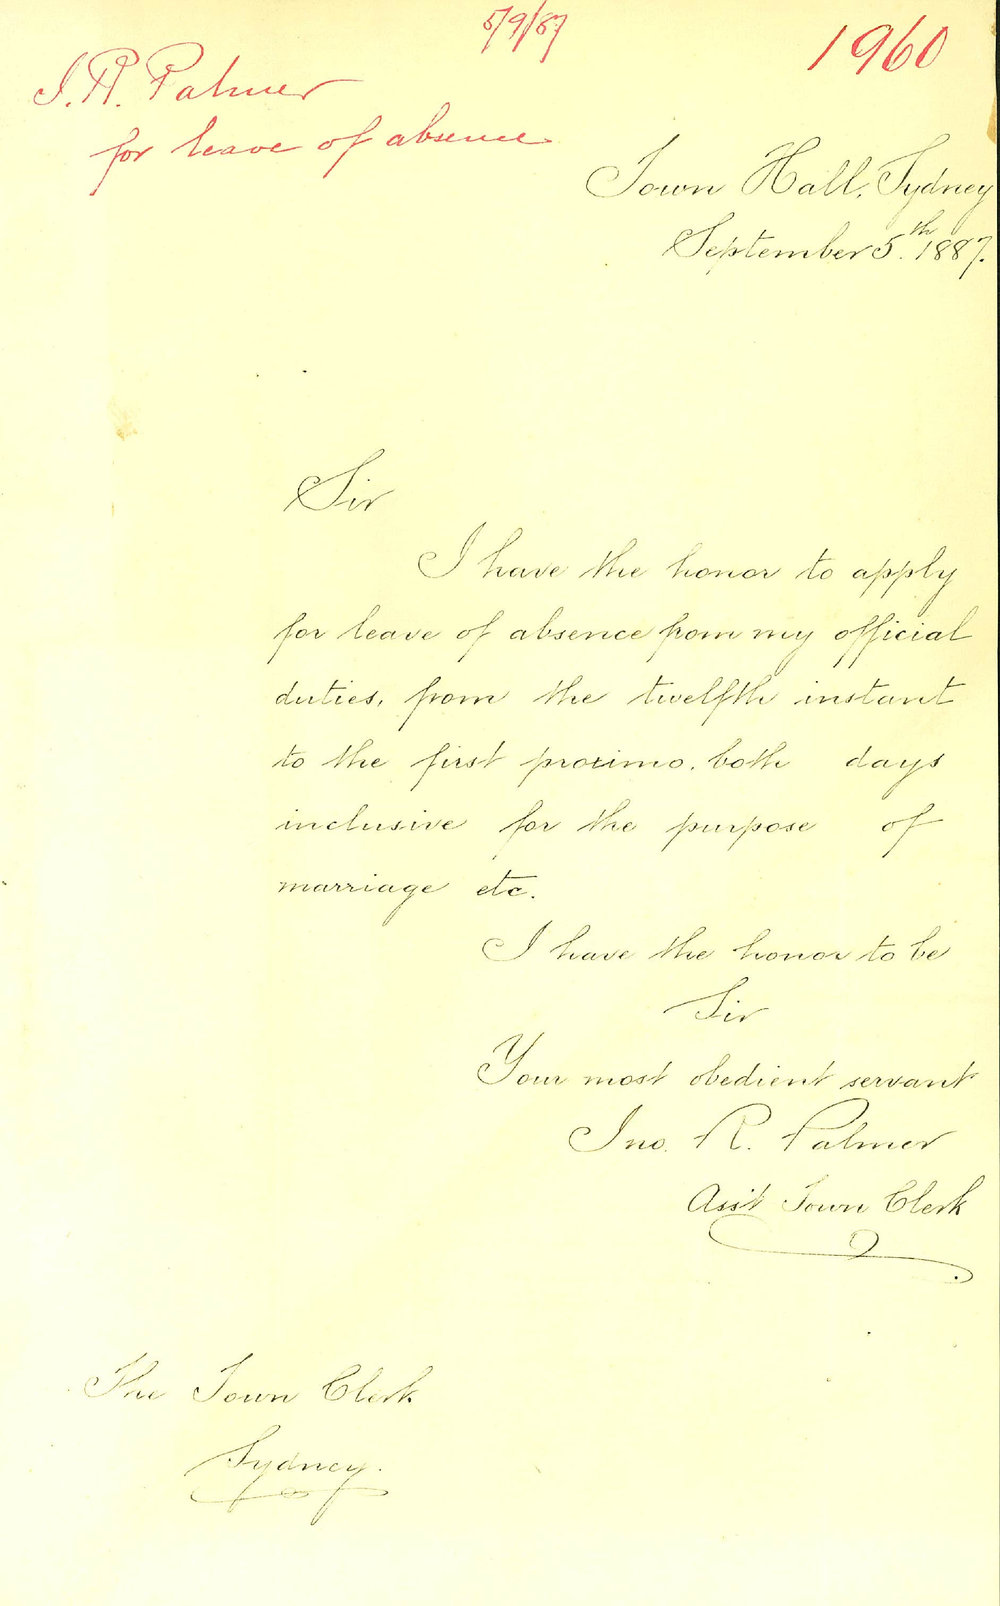 5/9/87
1960
J. R. Palmer
for leave of absence
Town Hall, Sydney
September 5th. 1887.
Sir
I have the honor to apply
for leave of absence from my official
duties, from the twelfth instant
to the first proximo, both days
inclusive for the purpose of
marriage etc.
I have the honor to be
Sir
Your most obedient servant
Jno. R. Palmer
Asst Town Clerk
The Town Clerk
Sydney.